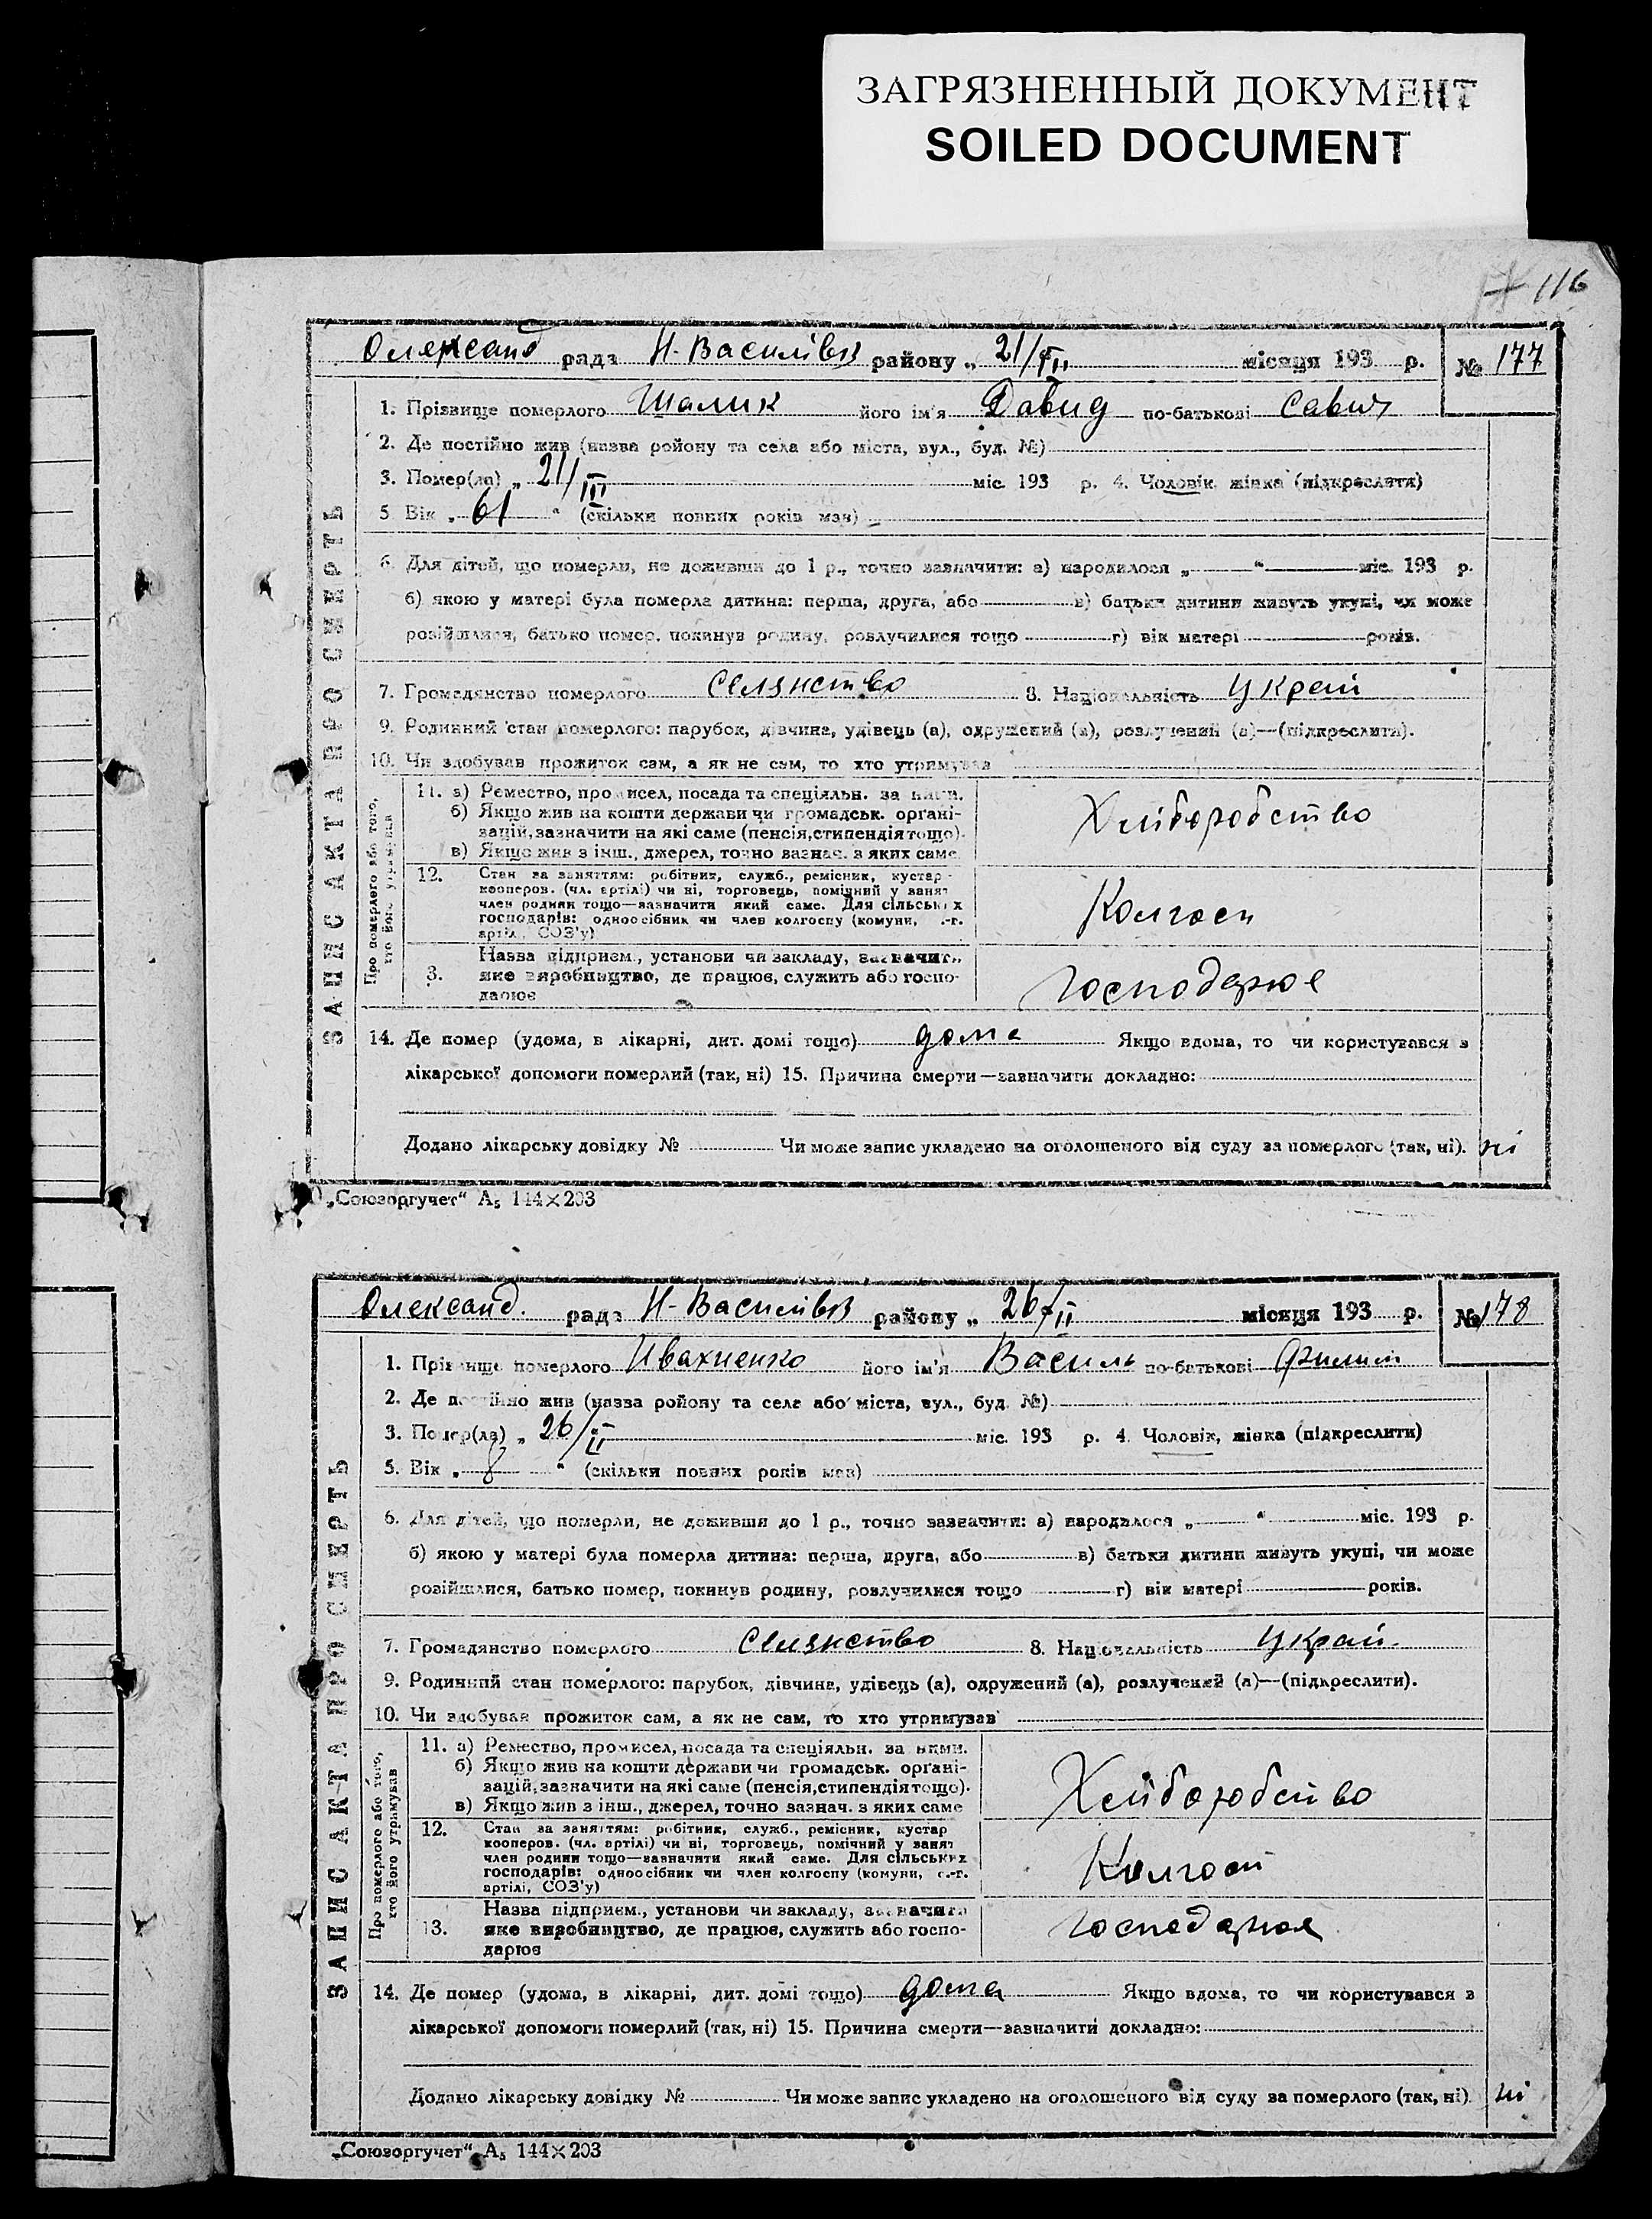 ЗАГРЯЗНЕННЫЙ ДОКУМЕНТ
SOILED DOCUMENT
116
Олександ рада Н-Василівк району „ 21/III місяця 193 р. № 177
1. Прізвище померлого Шалик його ім'я Давид по-батькові Савич
2. Де постійно жив (назва району та села або міста, вул., буд. №)
3. Помер(ла) „ 21/III міс. 193 р. 4. Чоловік, жінка (підкреслити)
5. Вік „ 61 “ (скільки повних років мав)
6. Для дітей, що померли, не доживши до 1 р., точно зазначити: а) народилося „ “ міс. 193 р.
б) якою у матері була померла дитина: перша, друга, або в) батьки дитини живуть укупі, чи може
розійшлися, батько помер, покинув родину, розлучилися тощо г) вік матері років.
7. Громадянство померлого Селянство 8. Національність Украй
9. Родинний стан померлого: парубок, дівчина, удівець (а), одружений (а), розлучений (а)—(підкреслити).
10. Чи здобував прожиток сам, а як не сам, то хто утримував
ЗАПИС АКТА ПРО СМЕРТЬ
Про померлого або того, хто його утримував
11. а) Ремество, промисел, посада та спеціяльн. за ними.
б) Якщо жив на кошти держави чи громадськ. орґані-
зацій, зазначити на які саме (пенсія, стипендія тощо).
в) Якщо жив з інш., джерел, точно зазнач. з яких саме
Хліборобство
12. Стан за заняттям: робітник, служб., ремісник, кустар
кооперов. (чл. артілі) чи ні, торговець, помічний у занят
член родини тощо—зазначити який саме. Для сільських
господарів: одноосібник чи член колгоспу (комуни, с.-г.
артілі, СОЗ'у)
Колгосп
3. Назва підприєм., установи чи закладу, зазначить
яке виробництво, де працює, служить або госпо-
дарює
Господарює
14. Де помер (удома, в лікарні, дит. домі тощо) дома Якщо вдома, то чи користувався з
лікарської допомоги померлий (так, ні) 15. Причина смерти—зазначити докладно:
Додано лікарську довідку № Чи може запис укладено на оголошеного від суду за померлого (так, ні). ні
„Союзоргучет“ А₅ 144×203
Олександ. рада Н-Василівк району „ 26/II місяця 193 р. № 178
1. Прізвище померлого Ивахненко його ім'я Василь по-батькові Филип
2. Де постійно жив (назва району та села або міста, вул., буд. №)
3. Помер(ла) „ 26/II міс. 193 р. 4. Чоловік, жінка (підкреслити)
5. Вік „ 8 “ (скільки повних років мав)
6. Для дітей, що померли, не доживши до 1 р., точно зазначити: а) народилося „ “ міс. 193 р.
б) якою у матері була померла дитина: перша, друга, або в) батьки дитини живуть укупі, чи може
розійшлися, батько помер, покинув родину, розлучилися тощо г) вік матері років.
7. Громадянство померлого Селянство 8. Національність Украй.
9. Родинний стан померлого: парубок, дівчина, удівець (а), одружений (а), розлучений (а)—(підкреслити).
10. Чи здобував прожиток сам, а як не сам, то хто утримував
ЗАПИС АКТА ПРО СМЕРТЬ
Про померлого або того, хто його утримував
11. а) Ремество, промисел, посада та спеціяльн. за ними.
б) Якщо жив на кошти держави чи громадськ. орґані-
зацій, зазначити на які саме (пенсія, стипендія тощо).
в) Якщо жив з інш., джерел, точно зазнач. з яких саме
Хліборобство
12. Стан за заняттям: робітник, служб., ремісник, кустар
кооперов. (чл. артілі) чи ні, торговець, помічний у занят
член родини тощо—зазначити який саме. Для сільських
господарів: одноосібник чи член колгоспу (комуни, с.-г.
артілі, СОЗ'у)
Колгосп
13. Назва підприєм., установи чи закладу, зазначить
яке виробництво, де працює, служить або госпо-
дарює
Господарює
14. Де помер (удома, в лікарні, дит. домі тощо) дома Якщо вдома, то чи користувався з
лікарської допомоги померлий (так, ні) 15. Причина смерти—зазначити докладно:
Додано лікарську довідку № Чи може запис укладено на оголошеного від суду за померлого (так, ні). ні
„Союзоргучет“ А₅ 144×203